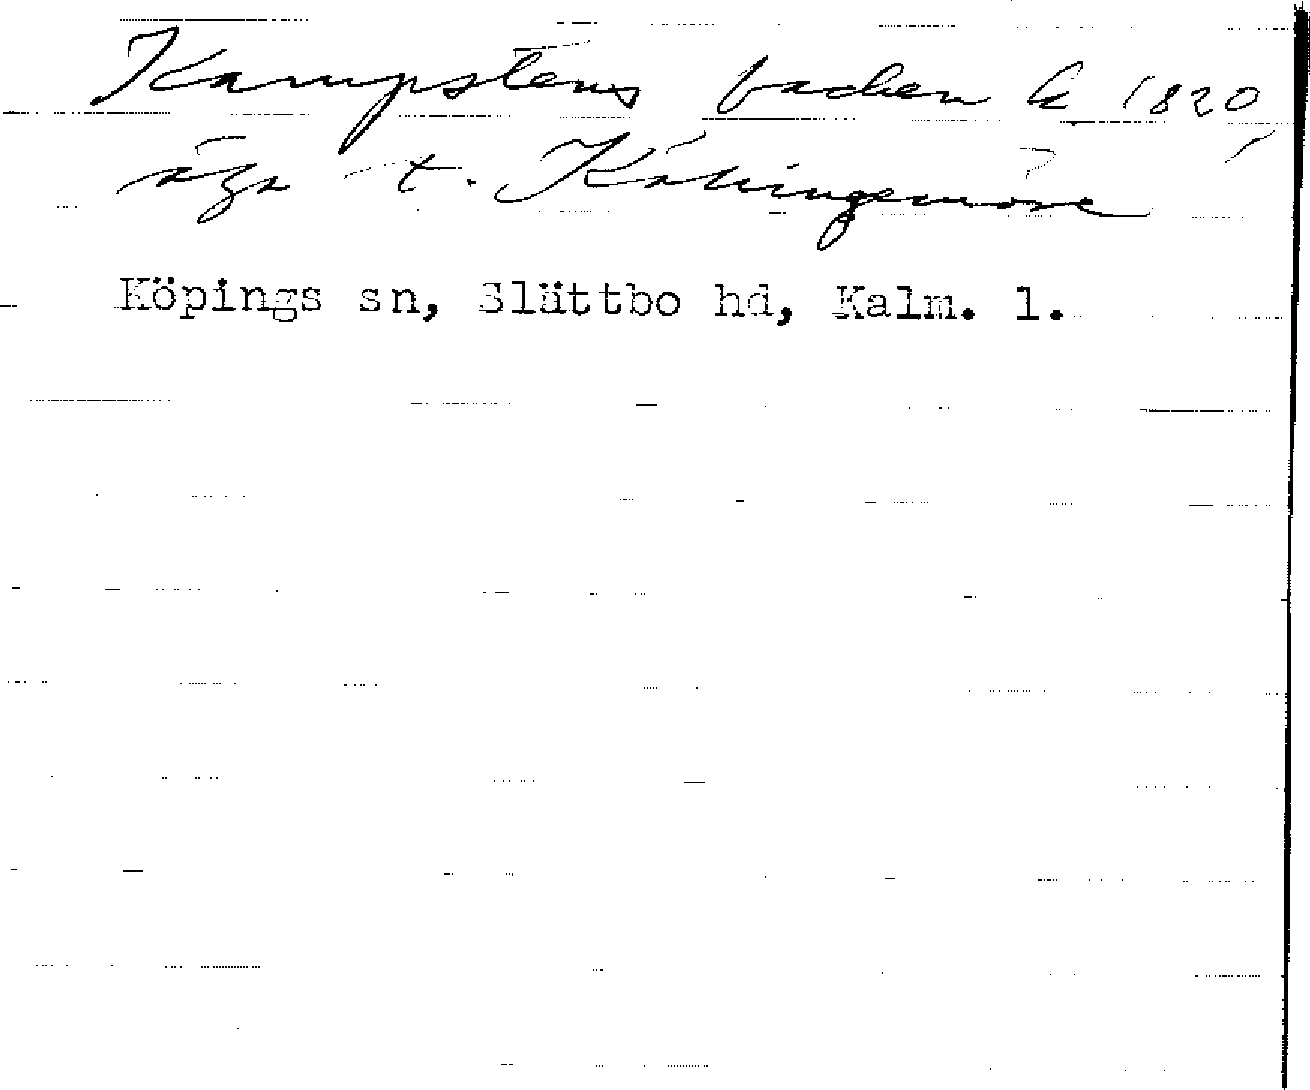 Kampstens backen k 1820,
äga t. Källingemöre
Köpings sn, Slättbo hd, Kalm. l.